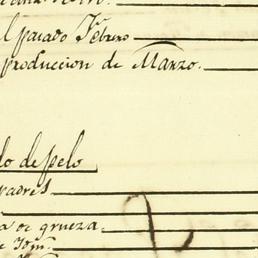 l pasado Febrero
produccion de Marzo.
do de pelo
padres
a de grueza.
e Idm.